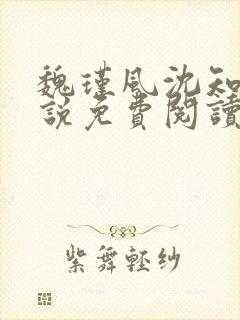 魏瑾風沈知
說免費閱讀
紫舞輕紗